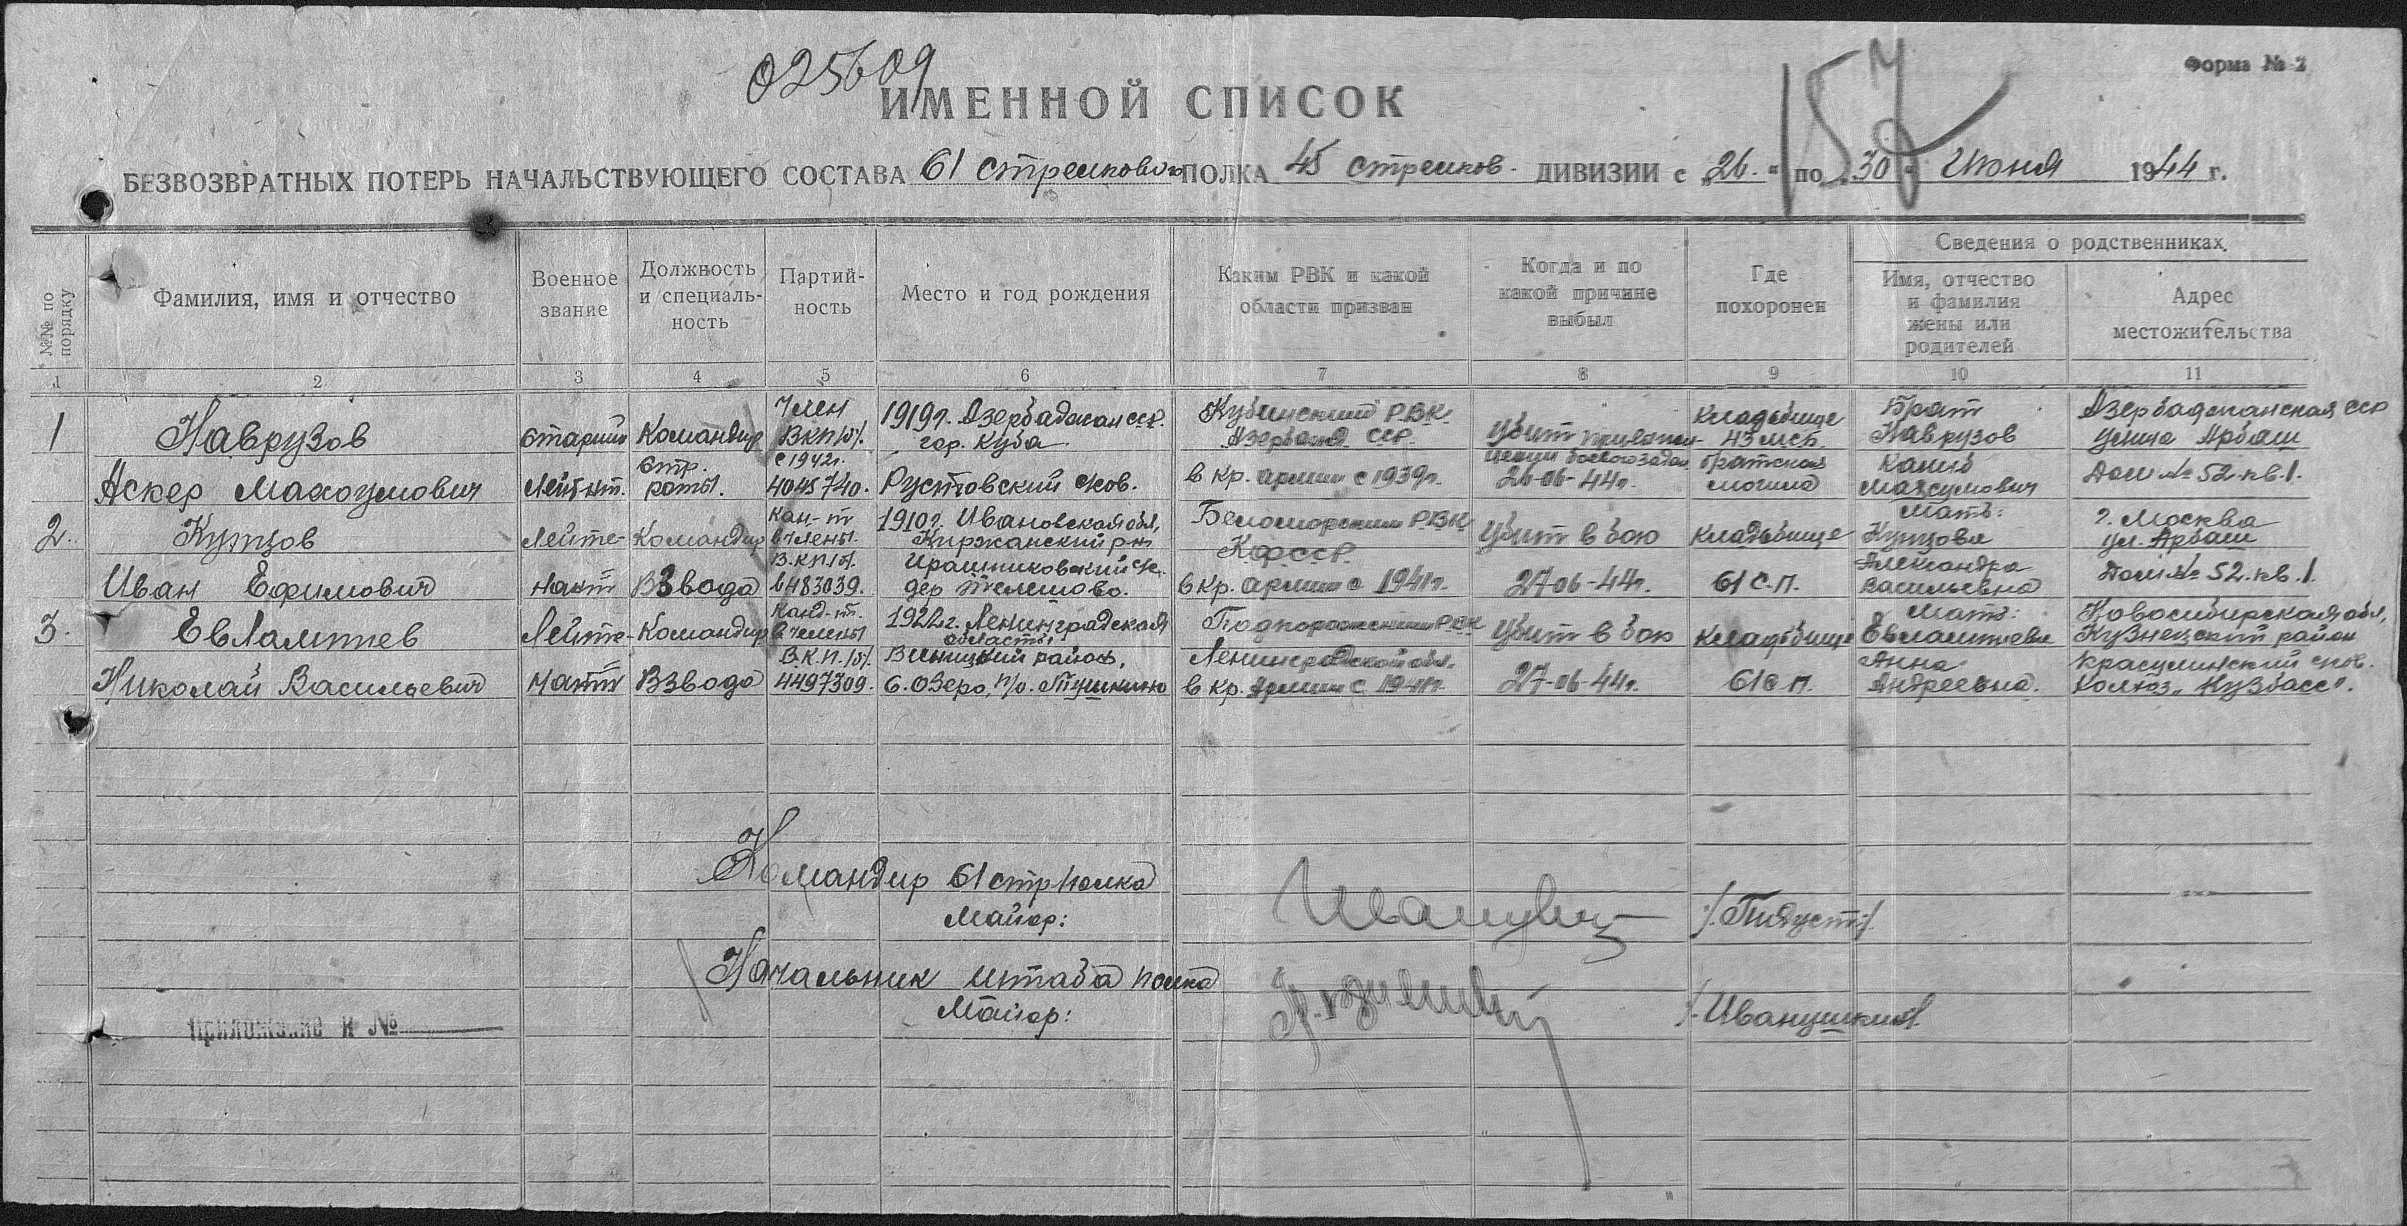 025609
157
Форма № 2
ИМЕННОЙ СПИСОК
БЕЗВОЗВРАТНЫХ ПОТЕРЬ НАЧАЛЬСТВУЮЩЕГО СОСТАВА 61 стрелкового ПОЛКА 45 стрелков. ДИВИЗИИ с „26." по „30" Июня 1944 г.
№№ по порядку
Фамилия, имя и отчество
Военное звание
Должность и специальность
Партийность
Место и год рождения
Каким РВК и какой области призван
Когда и по какой причине выбыл
Где похоронен
Сведения о родственниках.
Имя, отчество и фамилия жены или родителей
Адрес местожительства
1 2 3 4 5 6 7 8 9 10 11
1 Наврузов Аскер
старший Лейт-нт.
Командир стр. роты.
Член ВКП/б/. с 1942г. 4045740.
1919г. Азербаджан сср. гор. Куба Рустовский сков.
Кубинский РВК Азербайд ССР. в кр. армии с 1939г.
26-06-44г.
кладбище братская могила
Брат Наврузов
Азербаджанская сср улица Арбаш Дом № 52. кв. 1.
2. Купцов Иван Ефимович
Лейте-нант
Командир Взвода
Кан-т в члены В.К.П./б/. 6483039.
1910г. Ивановская обл, Киржанский р-н дер Телешово.
Беломорским РВК КФССР в кр. армии с 1941г.
Убит в бою 27-06-44г.
кладбище 61 с.п.
Мать: Купцова Александра Васильевна
г. Москва ул. Арбаш Дом № 52. кв. 1.
3. Евлампиев Николай Васильевич
Лейте-нант
Командир Взвода
Канд-т. в члены В.К.П./б/. 4497309.
1922г. Ленинградская область Виницкий район, с. Озеро, п/о.
Подпорожским РВК Ленинградской обл. в кр. Армии с 1941г.
Убит в бою 27-06-44г.
кладбище 61 с п.
Мать: Евлампиева Анна Андреевна.
Новосибирская обл, Кузнецкий район Колхоз „Кузбасс".
Командир 61 стр полка
Майор:
Начальник штаба полка
Майор:
/Иванушкин/.
Приложение к №